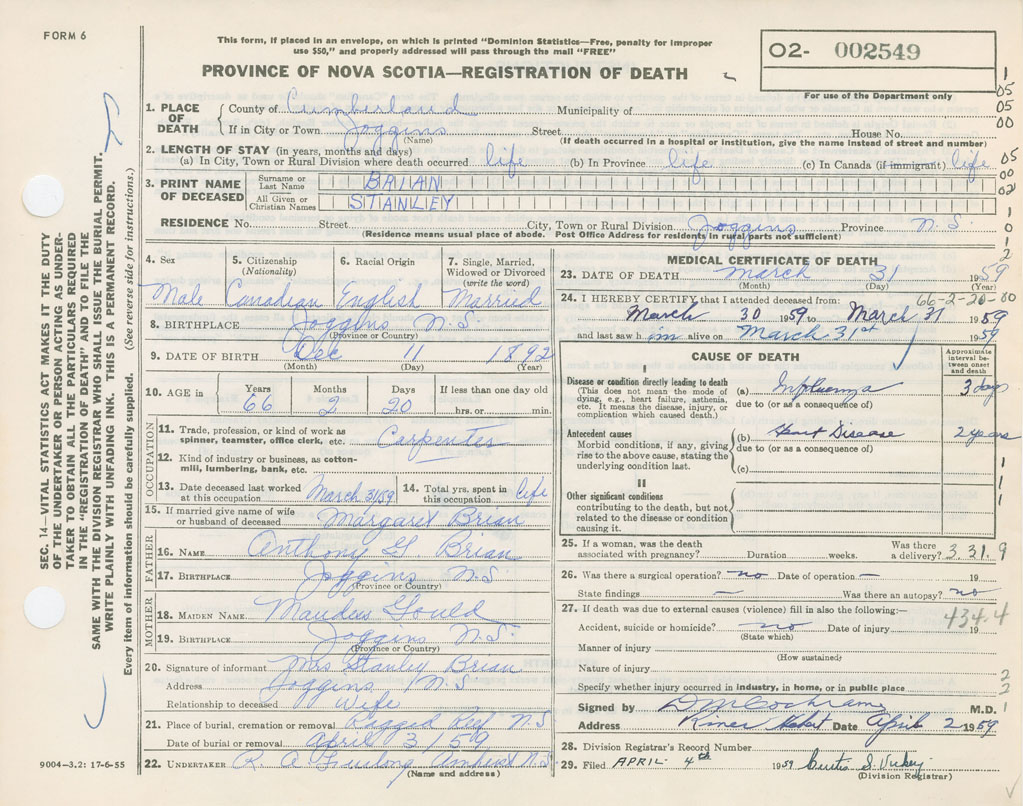 FORM 6
This form, if placed in an envelope, on which is printed "Dominion Statistics—Free, penalty for improper
use $50," and properly addressed will pass through the mail "FREE"
PROVINCE OF NOVA SCOTIA—REGISTRATION OF DEATH
O2- 002549
For use of the Department only
1. PLACE OF DEATH
County of Cumberland Municipality of
If in City or Town Joggins Street House No.
(Name) (If death occurred in a hospital or institution, give the name instead of street and number)
2. LENGTH OF STAY (in years, months and days)
(a) In City, Town or Rural Division where death occurred life (b) In Province life (c) In Canada (if immigrant) life
3. PRINT NAME OF DECEASED
Surname or Last Name BRIAN
All Given or Christian Names STANLEY
RESIDENCE No. Street City, Town or Rural Division Joggins Province N.S
(Residence means usual place of abode. Post Office Address for residents in rural parts not sufficient)
4. Sex
Male
5. Citizenship (Nationality)
Canadian
6. Racial Origin
English
7. Single, Married, Widowed or Divorced (write the word)
Married
8. BIRTHPLACE Joggins N.S.
(Province or Country)
9. DATE OF BIRTH Dec 11 1892
(Month) (Day) (Year)
10. AGE in
Years Months Days If less than one day old
66 2 20 hrs. or min.
OCCUPATION
11. Trade, profession, or kind of work as
spinner, teamster, office clerk, etc. Carpenter
12. Kind of industry or business, as cotton-
mill, lumbering, bank, etc.
13. Date deceased last worked
at this occupation March 31/59
14. Total yrs. spent in
this occupation life
15. If married give name of wife
or husband of deceased Margaret Brian
FATHER
16. NAME Anthony G Brian
17. BIRTHPLACE Joggins N.S
(Province or Country)
MOTHER
18. MAIDEN NAME Gould
19. BIRTHPLACE Joggins N.S.
(Province or Country)
20. Signature of informant Mrs Stanley Brian
Address Joggins N.S
Relationship to deceased Wife
21. Place of burial, cremation or removal Ragged Reef N.S
Date of burial or removal April 3/59
22. UNDERTAKER R. A Furlong Amherst N.S.
(Name and address)
MEDICAL CERTIFICATE OF DEATH
23. DATE OF DEATH March 31 1959
(Month) (Day) (Year)
66-2-20-00
24. I HEREBY CERTIFY that I attended deceased from:
March 30 1959 to March 31 1959
and last saw h im alive on March 31st 1959
CAUSE OF DEATH
Approximate interval between onset and death
I
Disease or condition directly leading to death
(This does not mean the mode of
dying, e.g., heart failure, asthenia,
etc. It means the disease, injury, or
complication which caused death.)
(a) Influenza 3 days
due to (or as a consequence of)
Antecedent causes
Morbid conditions, if any, giving
rise to the above cause, stating the
underlying condition last.
(b) Heart Disease 2 years
due to (or as a consequence of)
(c)
II
Other significant conditions
contributing to the death, but not
related to the disease or condition
causing it.
25. If a woman, was the death
associated with pregnancy? Duration weeks. Was there
a delivery? 3.31.9
26. Was there a surgical operation? no Date of operation — 19
State findings — Was there an autopsy? no
27. If death was due to external causes (violence) fill in also the following:—
434.4
Accident, suicide or homicide? no Date of injury 19
(State which)
Manner of injury
(How sustained)
Nature of injury
Specify whether injury occurred in industry, in home, or in public place
Signed by D M Cochrane M.D.
Address River Hebert Date April 2 1959
28. Division Registrar's Record Number
29. Filed APRIL 4th 1959 Curtis S.
(Division Registrar)
SEC. 14—VITAL STATISTICS ACT MAKES IT THE DUTY
OF THE UNDERTAKER OR PERSON ACTING AS UNDER-
TAKER TO OBTAIN ALL THE PARTICULARS REQUIRED
IN THE "REGISTRATION OF DEATH" AND TO FILE THE
SAME WITH THE DIVISION REGISTRAR WHO SHALL ISSUE THE BURIAL PERMIT.
WRITE PLAINLY WITH UNFADING INK. THIS IS A PERMANENT RECORD.
Every item of information should be carefully supplied. (See reverse side for instructions.)
9004-3.2: 17-6-55